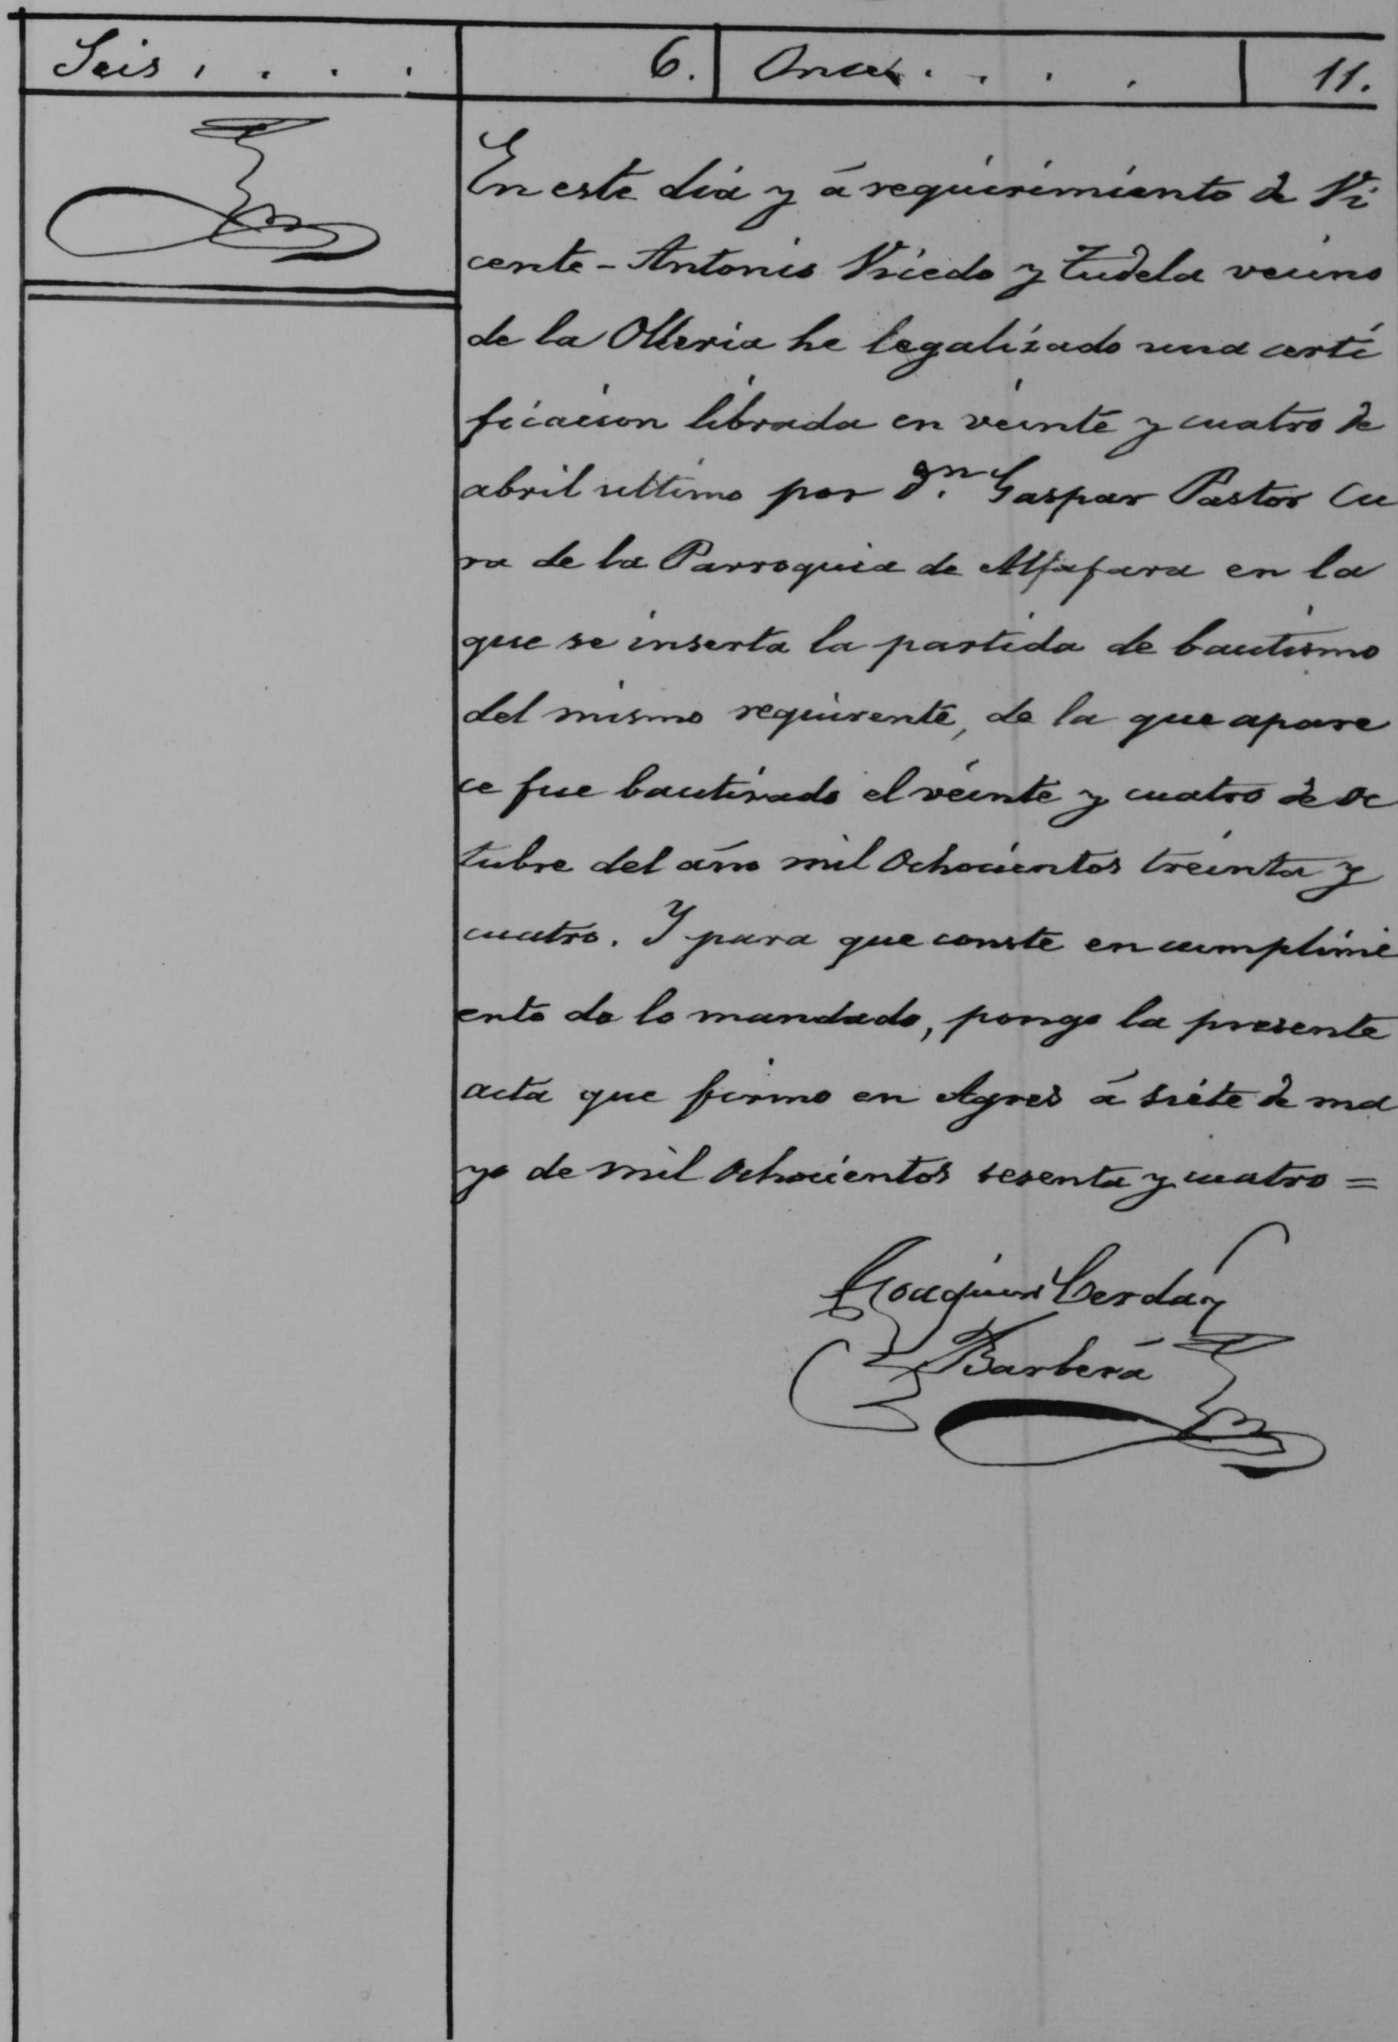 Seis . . . . 6. Once . . . . 11.
En este dia y á requirimiento de Vi
cente - Antonio Vicedo y Tudela vecino
de la Olleria he legalizado una certi
ficacion librada en veinte y cuatro de
abril ultimo por Dn. Gaspar Pastor Cu
ra de la Parroquia de Alfafara en la
que se inserta la partida de bautismo
del mismo requirente, de la que apare
ce fue bautizado el veinte y cuatro de Oc
tubre del año mil Ochocientos treinta y
cuatro. Y para que conste en cumplimi
ento de lo mandado, pongo la presente
acta que firmo en Agres á siete de ma
yo de mil Ochocientos sesenta y cuatro =
Joaquin Cerdá y
Barberá